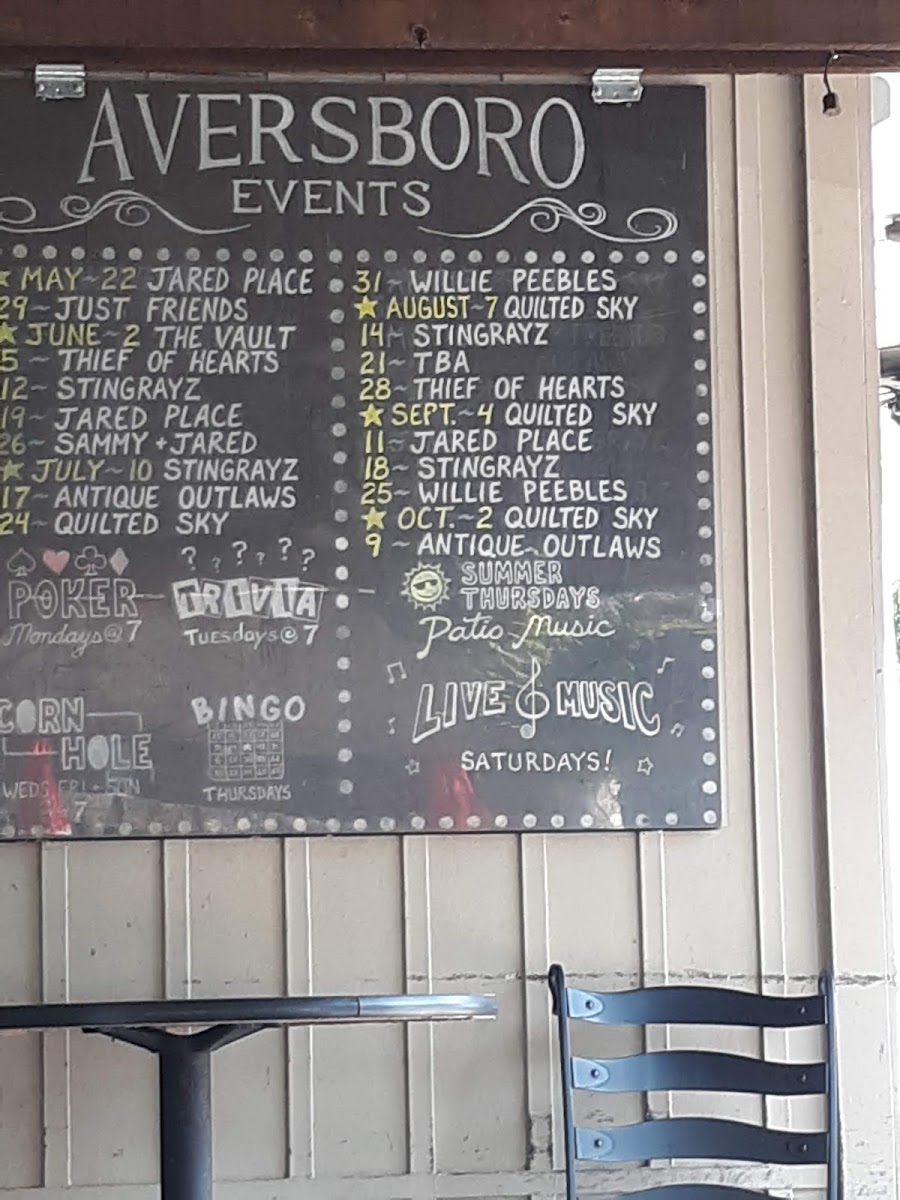 AVERSBORO
EVENTS
MAY~22 JARED PLACE
29~ JUST FRIENDS
JUNE~2 THE VAULT
5 ~ THIEF OF HEARTS
12~ STINGRAYZ
19~ JARED PLACE
26~ SAMMY + JARED
JULY~10 STINGRAYZ
17~ ANTIQUE OUTLAWS
24~ QUILTED SKY
31~ WILLIE PEEBLES
AUGUST~7 QUILTED SKY
14~ STINGRAYZ
21~ TBA
28~ THIEF OF HEARTS
SEPT.~4 QUILTED SKY
11~ JARED PLACE
18~ STINGRAYZ
25~ WILLIE PEEBLES
OCT.~2 QUILTED SKY
9 ~ ANTIQUE OUTLAWS
POKER
Mondays@7
? ? ? ? ? ?
TRIVIA
TUESDAYS@7
CORN
HOLE
WEDS FRI + SUN
7
BINGO
THURSDAYS
SUMMER
THURSDAYS
Patio Music
LIVE MUSIC
SATURDAYS!